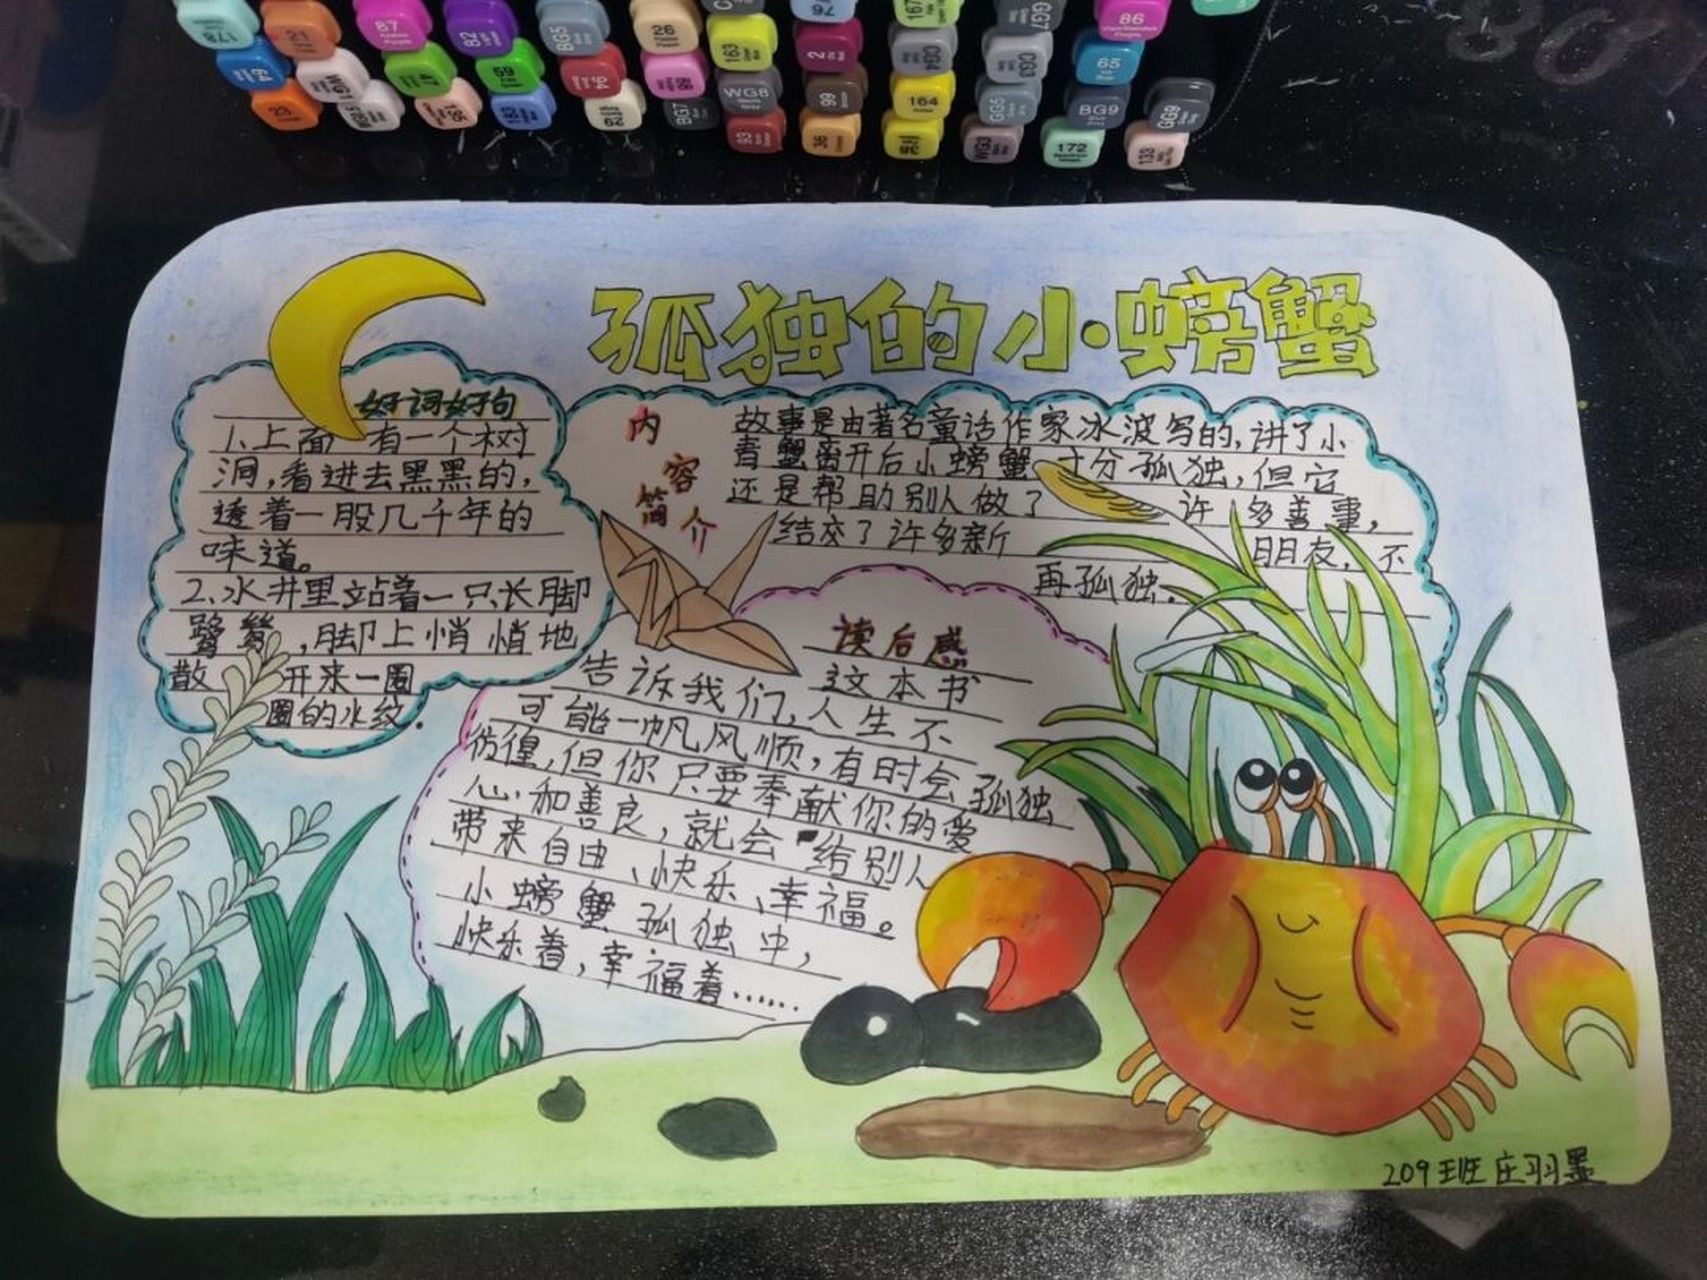 178
21
87
82
BG5
26
163
2
76
167
CG4
GG7
86
64
WG1
47
59
94
89
WG8
99
164
CG3
65
23
195
183
62
BG7
93
36
GG5
WG3
BG9
172
GG9
133
孤独的小螃蟹
好词好句
1、上面有一个树
洞,看进去黑黑的,
透着一股几千年的
味道。
2、水井里站着一只长脚
鹭鸶,脚上悄悄地
散开来一圈
圈的水纹.
内容简介
故事是由著名童话作家冰波写的,讲了小
青蟹离开后小螃蟹十分孤独,但它
还是帮助别人做了许多善事,
结交了许多新朋友,不
再孤独.
读后感
这本书
告诉我们,人生不
可能一帆风顺,有时会孤独
彷徨,但你只要奉献你的爱
心和善良,就会给别人
带来自由、快乐、幸福。
小螃蟹孤独中,
快乐着,幸福着……
209班庄羽墨